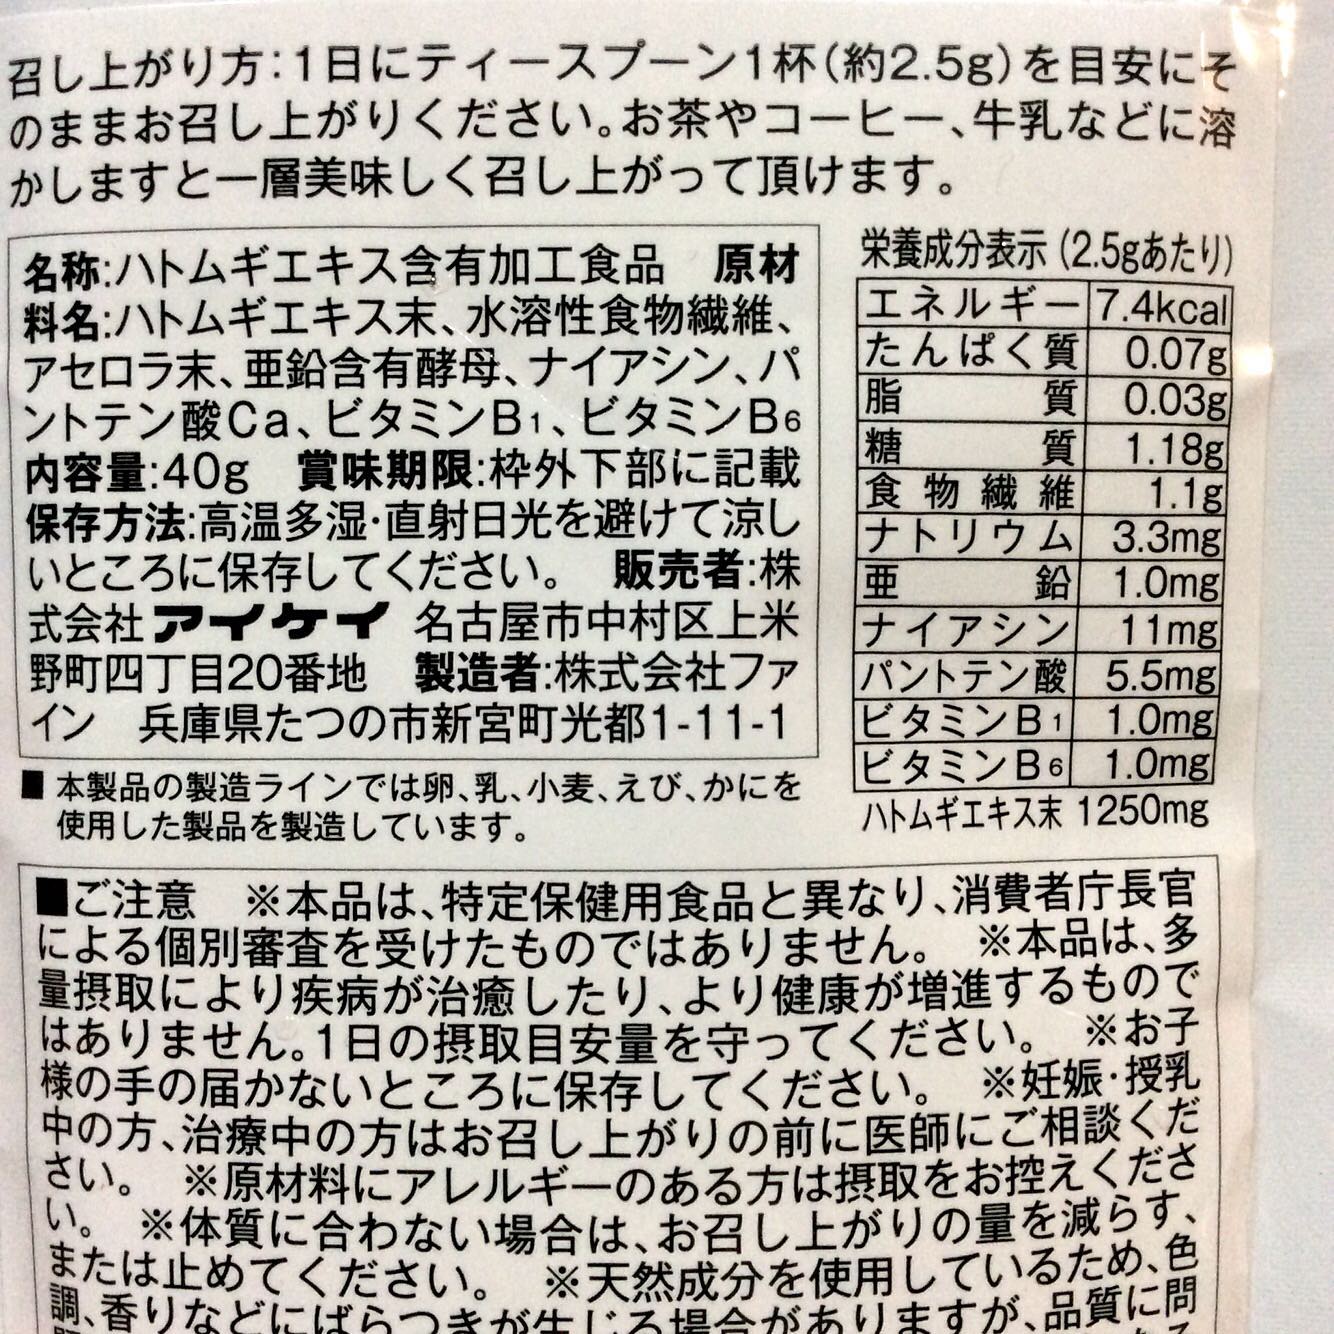 召し上がり方:1日にティースプーン1杯(約2.5g)を目安にそ
のままお召し上がりください。お茶やコーヒー、牛乳などに溶
かしますと一層美味しく召し上がって頂けます。
名称:ハトムギエキス含有加工食品 原材
料名:ハトムギエキス末、水溶性食物繊維、
アセロラ末、亜鉛含有酵母、ナイアシン、パ
ントテン酸Ca、ビタミンB1、ビタミンB6
内容量:40g 賞味期限:枠外下部に記載
保存方法:高温多湿・直射日光を避けて涼し
いところに保存してください。 販売者:株
式会社アイケイ 名古屋市中村区上米
野町四丁目20番地 製造者:株式会社ファ
イン 兵庫県たつの市新宮町光都1-11-1
■本製品の製造ラインでは卵、乳、小麦、えび、かにを
使用した製品を製造しています。
栄養成分表示(2.5gあたり)
エネルギー 7.4kcal
たんぱく質 0.07g
脂質 0.03g
糖質 1.18g
食物繊維 1.1g
ナトリウム 3.3mg
亜鉛 1.0mg
ナイアシン 11mg
パントテン酸 5.5mg
ビタミンB1 1.0mg
ビタミンB6 1.0mg
ハトムギエキス末 1250mg
■ご注意 ※本品は、特定保健用食品と異なり、消費者庁長官
による個別審査を受けたものではありません。 ※本品は、多
量摂取により疾病が治癒したり、より健康が増進するもので
はありません。1日の摂取目安量を守ってください。 ※お子
様の手の届かないところに保存してください。 ※妊娠・授乳
中の方、治療中の方はお召し上がりの前に医師にご相談くだ
さい。 ※原材料にアレルギーのある方は摂取をお控えくださ
い。 ※体質に合わない場合は、お召し上がりの量を減らす、
または止めてください。 ※天然成分を使用しているため、色
調、香りなどにばらつきが生じる場合がありますが、品質に問